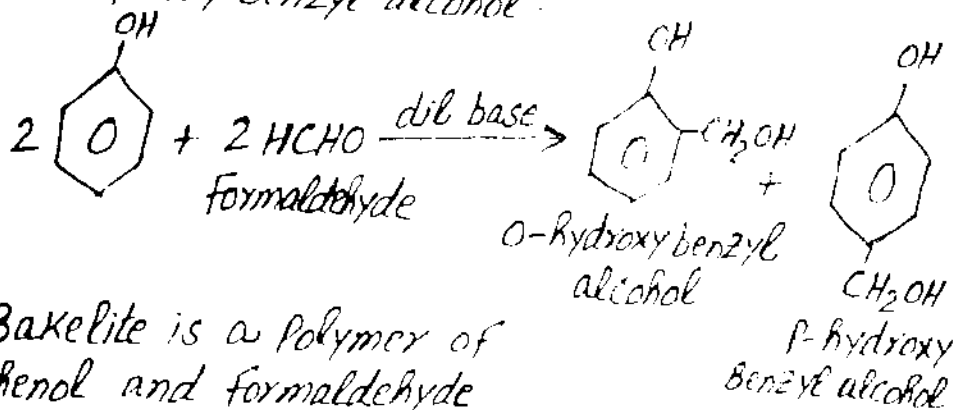 Benzyl alcohol.
OH
2 + 2 HCHO dil base
Formaldehyde
OH
CH2OH
+
O-hydroxy benzyl
alcohol
OH
CH2OH
P-hydroxy
Benzyl alcohol
Bakelite is a Polymer of
Phenol and Formaldehyde